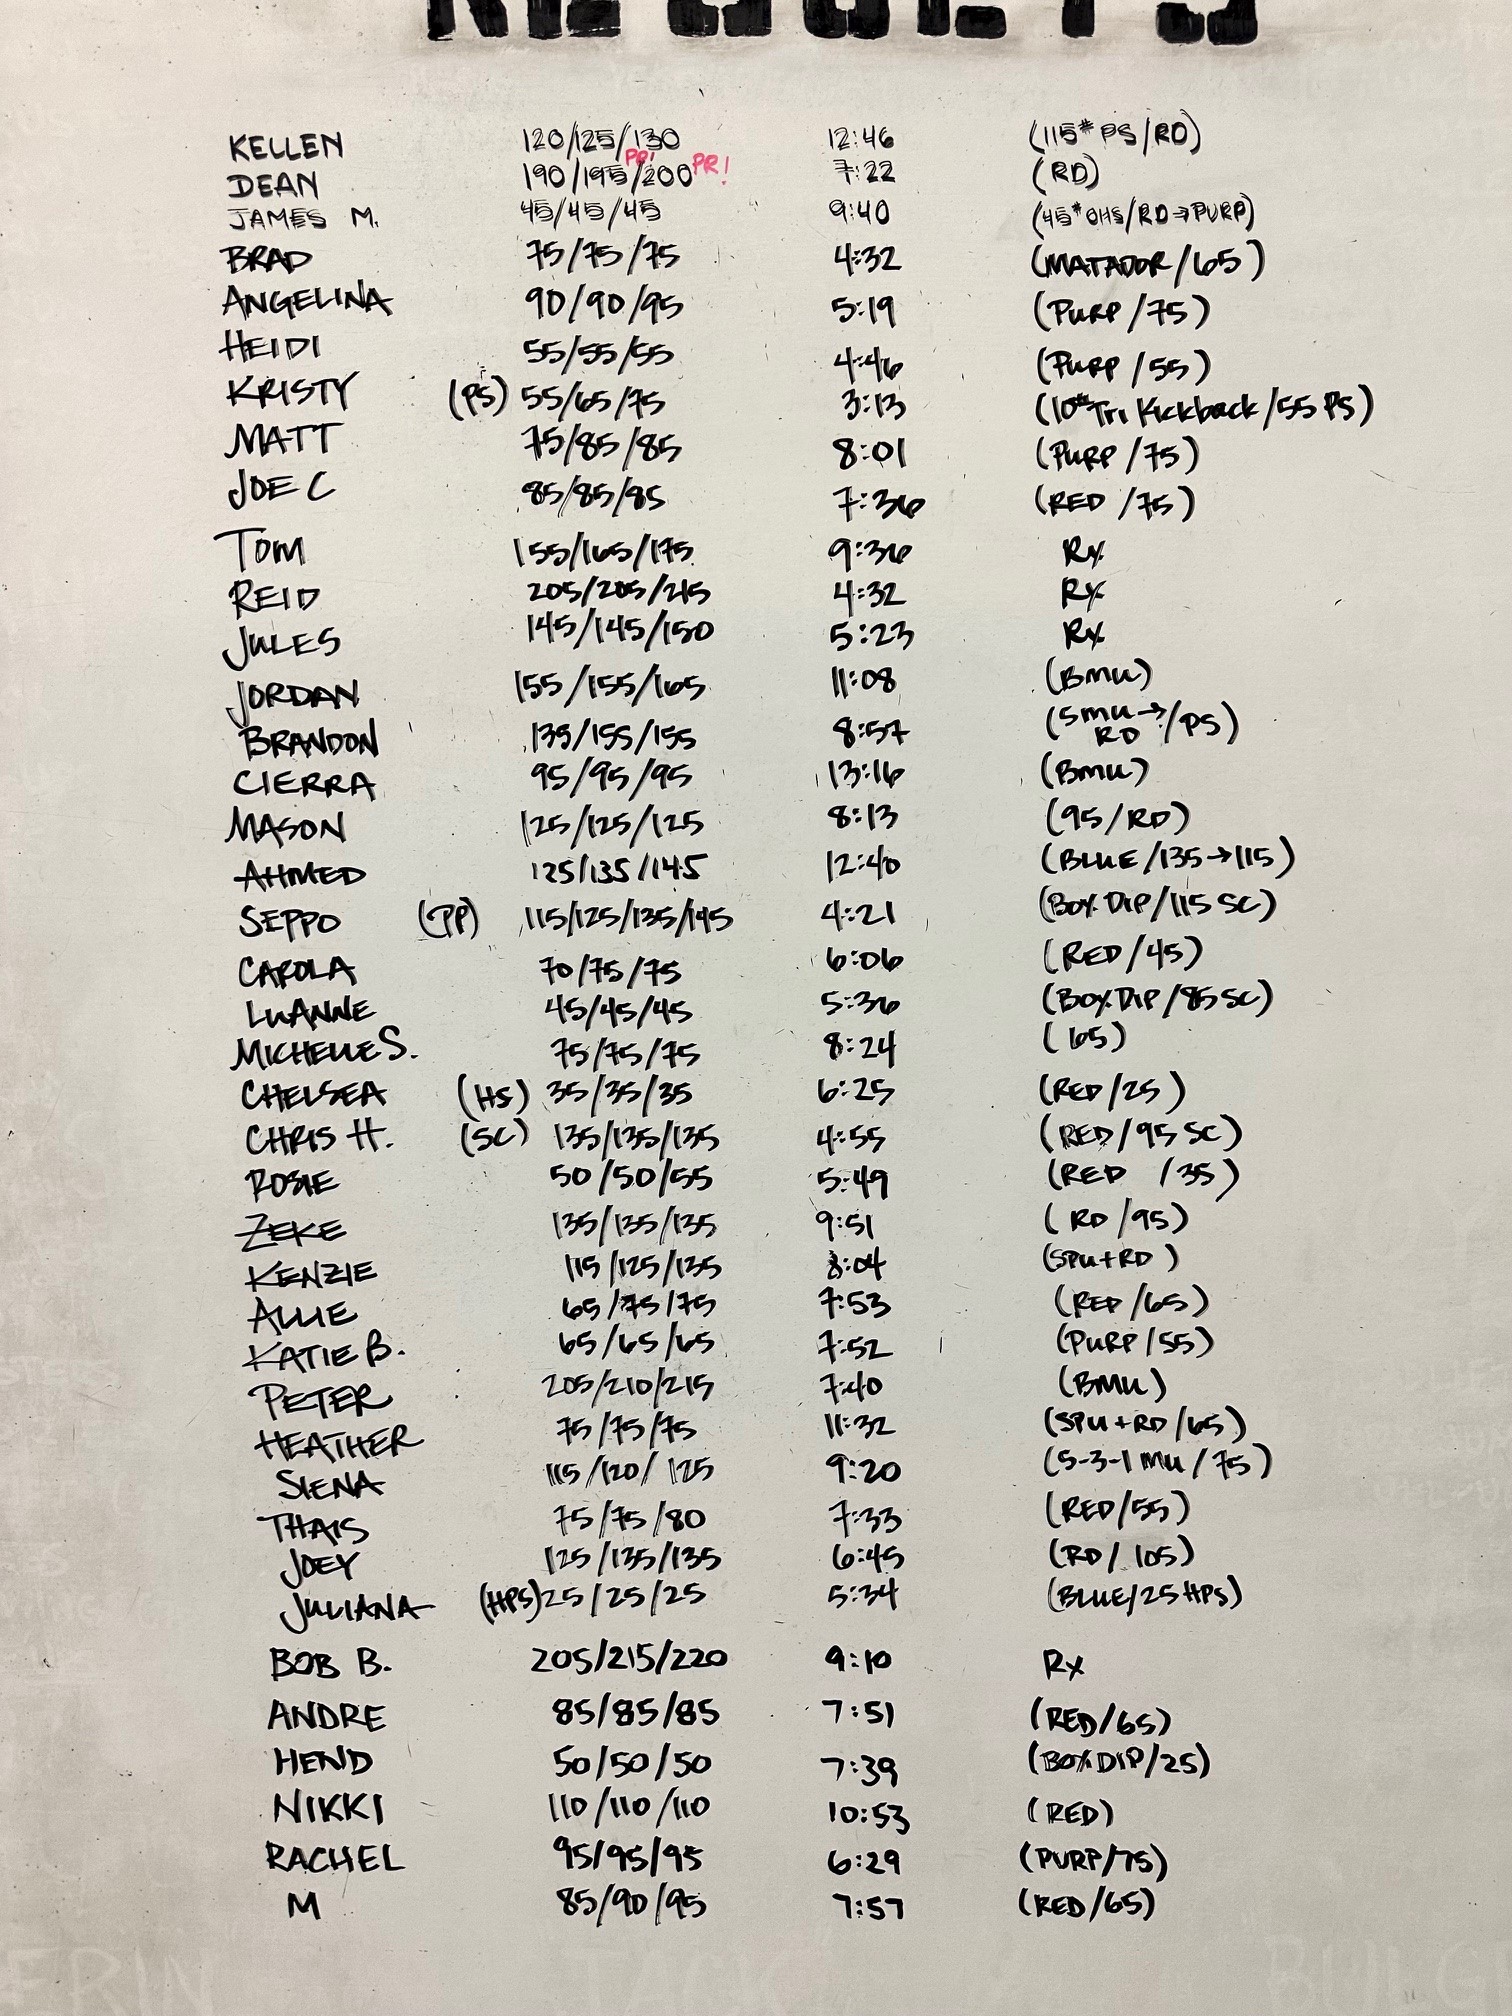 RESULTS
KELLEN 120/125/130 12:46 (115# PS/RD)
DEAN 190/195/200 PR! PR! 7:22 (RD)
JAMES M. 45/45/45 9:40 (45# OHS/RD→PURP)
BRAD 75/75/75 4:32 (MATADOR/65)
ANGELINA 90/90/95 5:19 (PURP/75)
HEIDI 55/55/55 4:46 (PURP/55)
KRISTY (PS) 55/65/75 3:13 (10# Tri Kickback/55 PS)
MATT 75/85/85 8:01 (PURP/75)
JOE C 85/85/85 7:36 (RED/75)
TOM 155/165/175 9:36 Rx
REID 205/205/215 4:32 Rx
JULES 145/145/150 5:23 Rx
JORDAN 155/155/165 11:08 (BMU)
BRANDON 135/155/155 8:57 (5MU→RD/PS)
CIERRA 95/95/95 13:16 (BMU)
MASON 125/125/125 8:13 (95/RD)
AHMED 125/135/145 12:40 (BLUE/135→115)
SEPPO (PP) 115/125/135/145 4:21 (BOX DIP/115 SC)
CAROLA 70/75/75 6:06 (RED/45)
LUANNE 45/45/45 5:36 (BOX DIP/85 SC)
MICHELLE S. 75/75/75 8:24 (65)
CHELSEA (HS) 35/35/35 6:25 (RED/25)
CHRIS H. (SC) 135/135/135 4:55 (RED/95 SC)
ROSIE 50/50/55 5:49 (RED /35)
ZEKE 135/135/135 9:51 (RD/95)
KENZIE 115/125/135 8:04 (SPU+RD)
ALLIE 65/75/75 7:53 (RED/65)
KATIE B. 65/65/65 7:52 (PURP/55)
PETER 205/210/215 7:40 (BMU)
HEATHER 75/75/75 11:32 (SPU+RD/65)
SIENA 115/120/125 9:20 (5-3-1 MU/75)
THAIS 75/75/80 7:33 (RED/55)
JOEY 125/135/135 6:45 (RD/105)
JULIANA (HPS) 25/25/25 5:34 (BLUE/25 HPS)
BOB B. 205/215/220 9:10 Rx
ANDRE 85/85/85 7:51 (RED/65)
HEND 50/50/50 7:39 (BOX DIP/25)
NIKKI 110/110/110 10:53 (RED)
RACHEL 95/95/95 6:29 (PURP/75)
M 85/90/95 7:57 (RED/65)